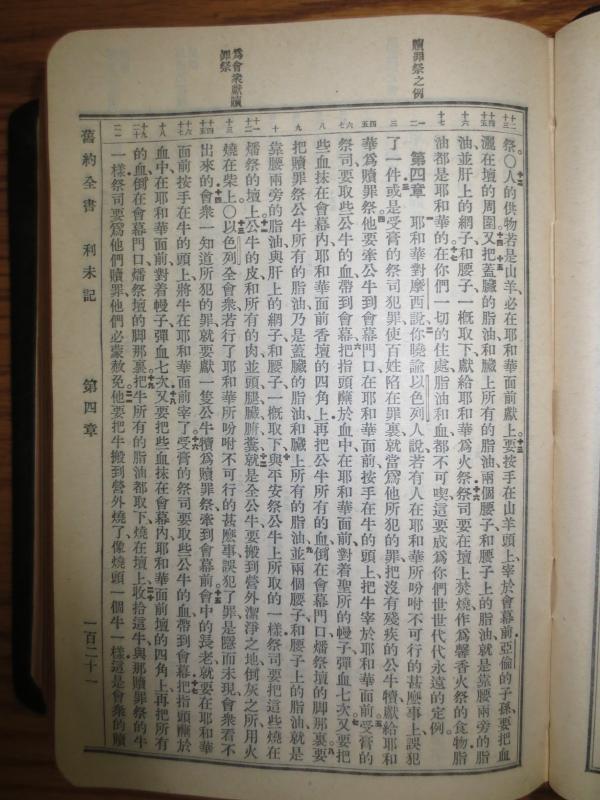 贖罪祭之例
為會衆獻贖
罪祭
祭○人的供物若是山羊必在耶和華面前獻上要按手在山羊頭上宰於會幕前亞倫的子孫要把血
灑在壇的周圍又把蓋臟的脂油和臟上所有的脂油兩個腰子和腰子上的脂油就是靠腰兩旁的脂
油並肝上的網子和腰子一概取下獻給耶和華為火祭祭司要在壇上焚燒作為馨香火祭的食物脂
油都是耶和華的在你們一切的住處脂油和血都不可喫這要成為你們世世代代永遠的定例
第四章 耶和華對摩西說你曉諭以色列人說若有人在耶和華所吩咐不可行的甚麼事上誤犯
了一件或是受膏的祭司犯罪使百姓陷在罪裏就當為他所犯的罪把沒有殘疾的公牛犢獻給耶和
華為贖罪祭他要牽公牛到會幕門口在耶和華面前按手在牛的頭上把牛宰於耶和華面前受膏的
祭司要取些公牛的血帶到會幕把指頭蘸於血中在耶和華面前對着聖所的幔子彈血七次又要把
些血抹在會幕內耶和華面前香壇的四角上再把公牛所有的血倒在會幕門口燔祭壇的脚那裏要
把贖罪祭公牛所有的脂油乃是蓋臟的脂油和臟上所有的脂油並兩個腰子和腰子上的脂油就是
靠腰兩旁的脂油與肝上的網子和腰子一概取下與平安祭公牛上所取的一樣祭司要把這些燒在
燔祭的壇上公牛的皮和所有的肉並頭腿臟腑糞就是全公牛要搬到營外潔淨之地倒灰之所用火
燒在柴上○以色列全會衆若行了耶和華所吩咐不可行的甚麼事誤犯了罪是隱而未現會衆看不
出來的會衆一知道所犯的罪就要獻一隻公牛犢為贖罪祭牽到會幕前會中的長老就要在耶和華
面前按手在牛的頭上將牛在耶和華面前宰了受膏的祭司要取些公牛的血帶到會幕把指頭蘸於
血中在耶和華面前對着幔子彈血七次又要把些血抹在會幕內耶和華面前壇的四角上再把所有
的血倒在會幕門口燔祭壇的脚那裏把牛所有的脂油都取下燒在壇上收拾這牛與那贖罪祭的牛
一樣祭司要為他們贖罪他們必蒙赦免他要把牛搬到營外燒了像燒頭一個牛一樣這是會衆的贖
舊約全書 利未記 第四章 一百二十一